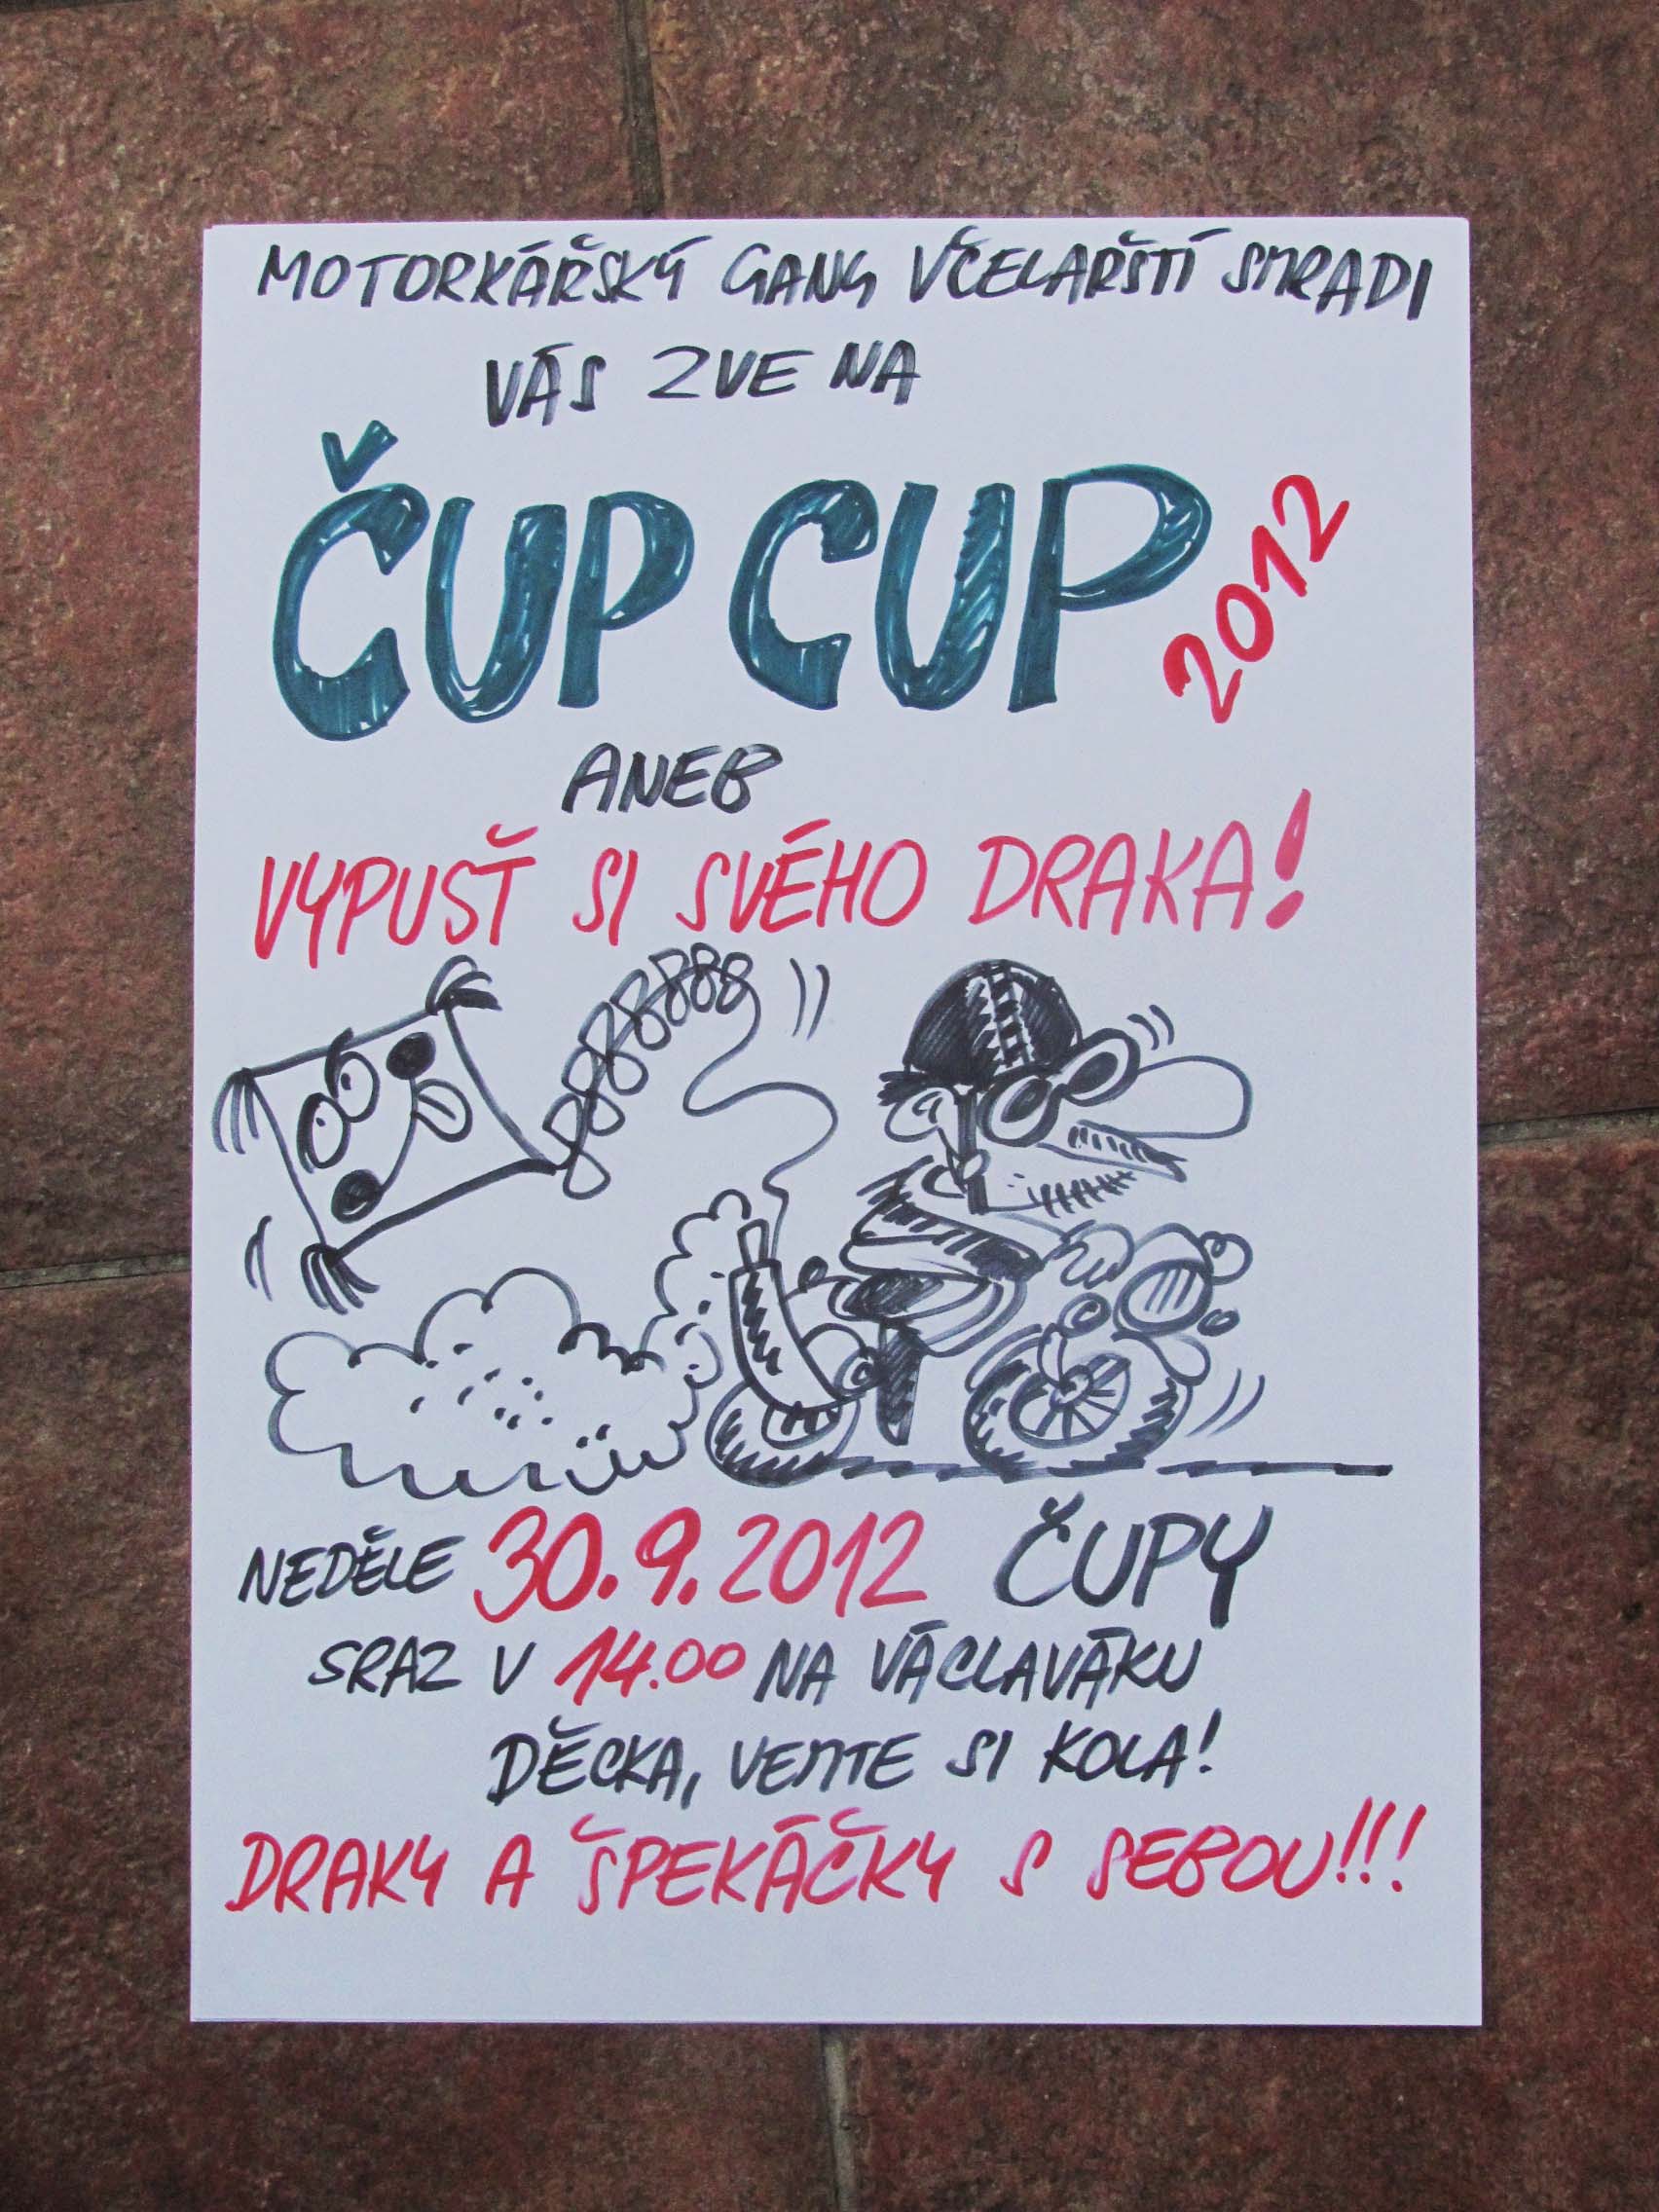 MOTORKÁŘSKÝ GANG VČELAŘŠTÍ SMRADI
VÁS ZVE NA
ČUP CUP 2012
ANEB
VYPUSŤ SI SVÉHO DRAKA!
NEDĚLE 30.9.2012 ČUPY
SRAZ V 14.00 NA VÁCLAVÁKU
DĚCKA, VEMTE SI KOLA!
DRAKY A ŠPEKÁČKY S SEBOU!!!